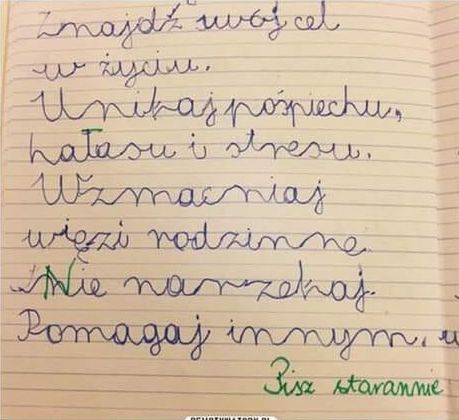 Znajdź swój cel
w życiu.
Unikaj pośpiechu,
hałasu i stresu.
Wzmacniaj
więzi rodzinne
Nie narzekaj.
Pomagaj innym.
Pisz starannie